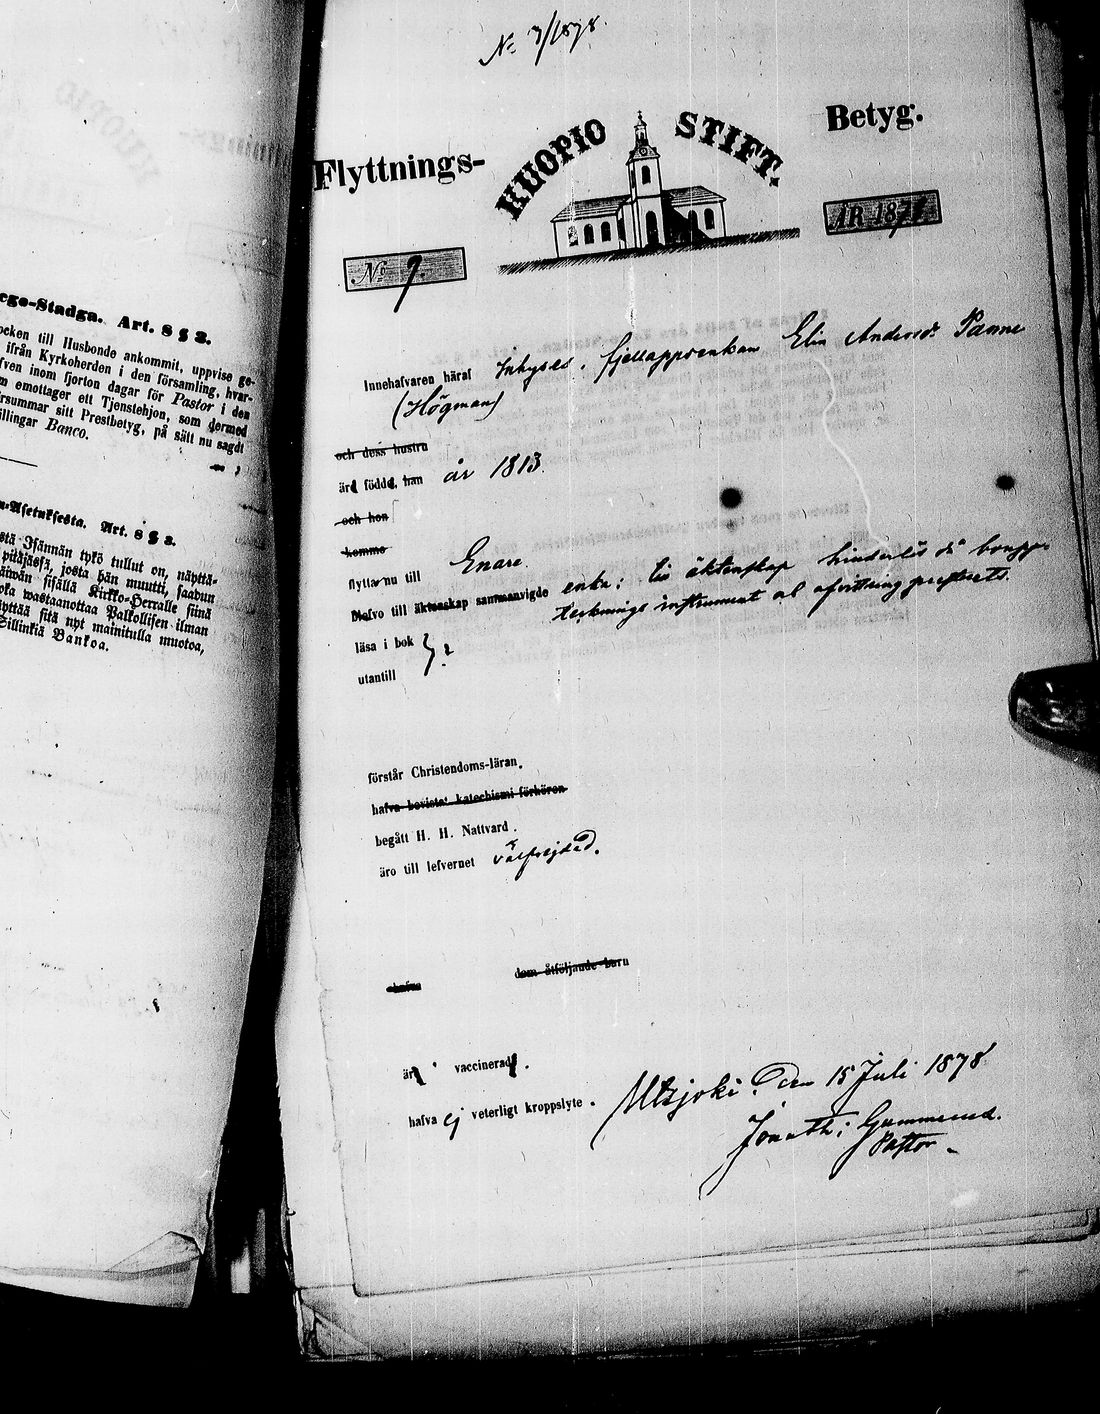 ego-Stadga. Art. 8 § 2.
ocken till Husbonde ankommit, uppvise ge-
ifrån Kyrkoherden i den församling, hvar-
fven inom fjorton dagar för Pastor i den
m emottager ett Tjenstehjon, som dermed
rsummar sitt Prestbetyg, på sätt nu sagdt
illingar Banco.
n-Asetuksesta. Art. 8 § 2.
stä Isännän tykö tullut on, näyttä-
pitäjässä, josta hän muutti, saadun
äiwän sisällä Kirkko-Herralle siinä
oka wastaanottaa Palkollisen ilman
yttää sitä nyt mainitulla muotoa,
Sillinkiä Bankoa.
No 7/1878.
Flyttnings- KUOPIO STIFT. Betyg.
No 7. ÅR 1878.
Innehafvaren häraf Inhyses, fjellappsenkan Elin Andersdr Panne
(Högman)
och dess hustru
är född, han år 1813.
och hon
komme
flytta nu till Enare.
Blefvo till äktenskap sammanvigde enka; till äktenskap hinderlös då boupp-
tecknings instrument ol afvittring presterets.
läsa i bok } ?
utantill
förstår Christendoms-läran.
hafva bevistat katechismi förhören
begått H. H. Nattvard.
äro till lefvernet välfrejdad.
hafva dem åtföljande barn
är vaccinerad.
hafva ej veterligt kroppslyte.
Utsjoki, den 15 Juli 1878
Jonath; Gummerus.
Pastor